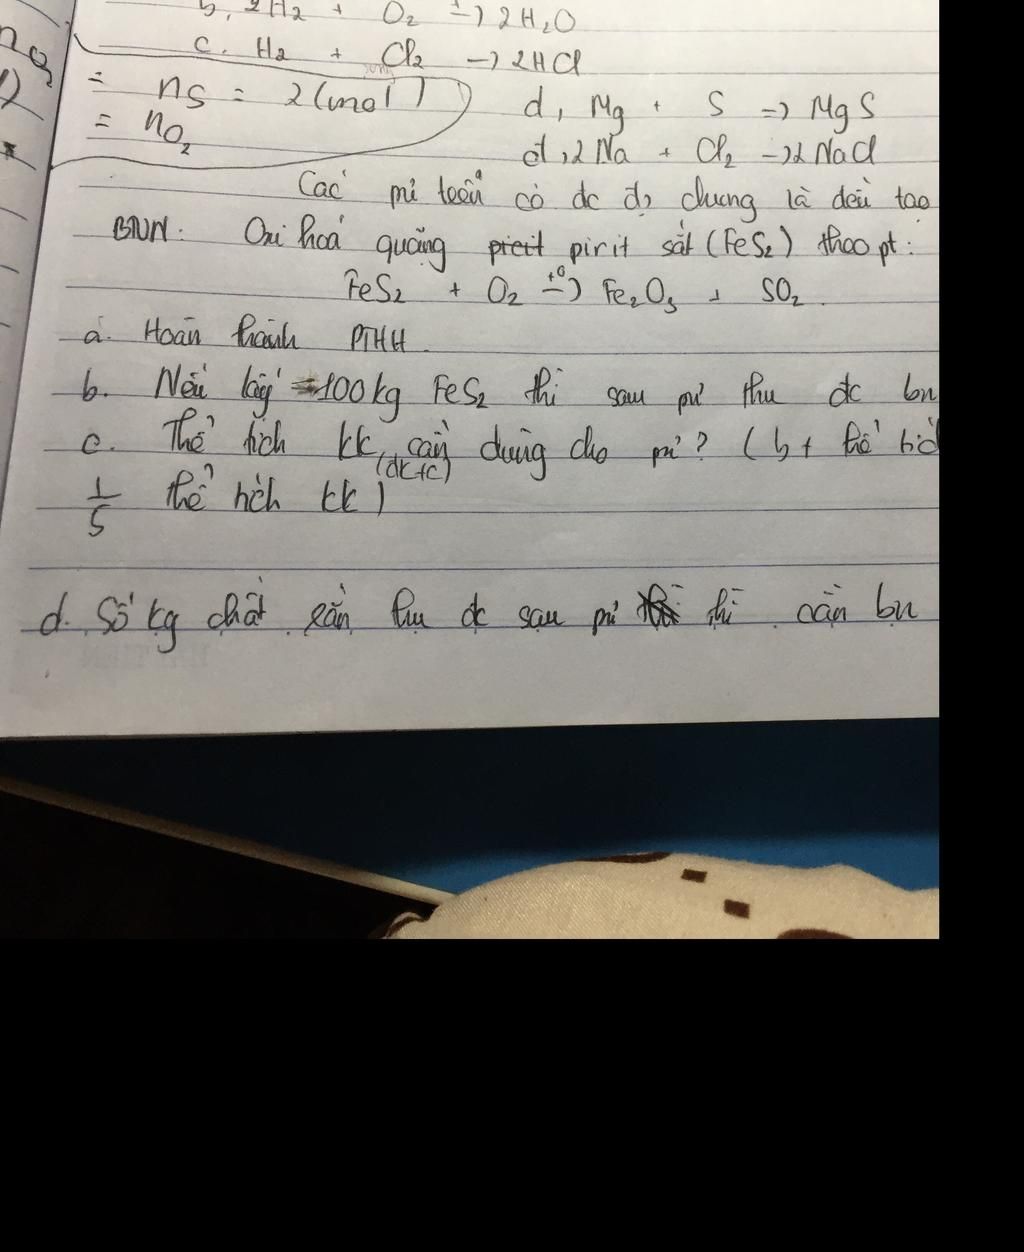 b, 2H₂ + O₂ → 2H₂O
c. H₂ + Cl₂ → 2HCl
= nS = 2 (mol)
= nO₂
d, Mg + S => MgS
đ, 2Na + Cl₂ → 2NaCl
Các pứ toán có đc đ² chung là đều tạo
BTVN: Oxi hoá quặng pirit sắt (FeS₂) theo pt:
FeS₂ + O₂ →(t⁰) Fe₂O₃ + SO₂
a. Hoàn thành PTHH
b. Nếu lấy 100kg FeS₂ thì sau pứ thu đc bn
c. Thể tích kk (đktc) cần dùng cho pứ? (b+ thể tích
1/5 thể tích kk)
d. Số kg chất rắn thu đc sau pứ thì cần bn